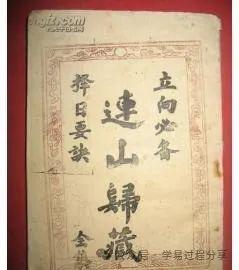 立向必备
連山歸藏
擇日要訣
全
学易过程分享